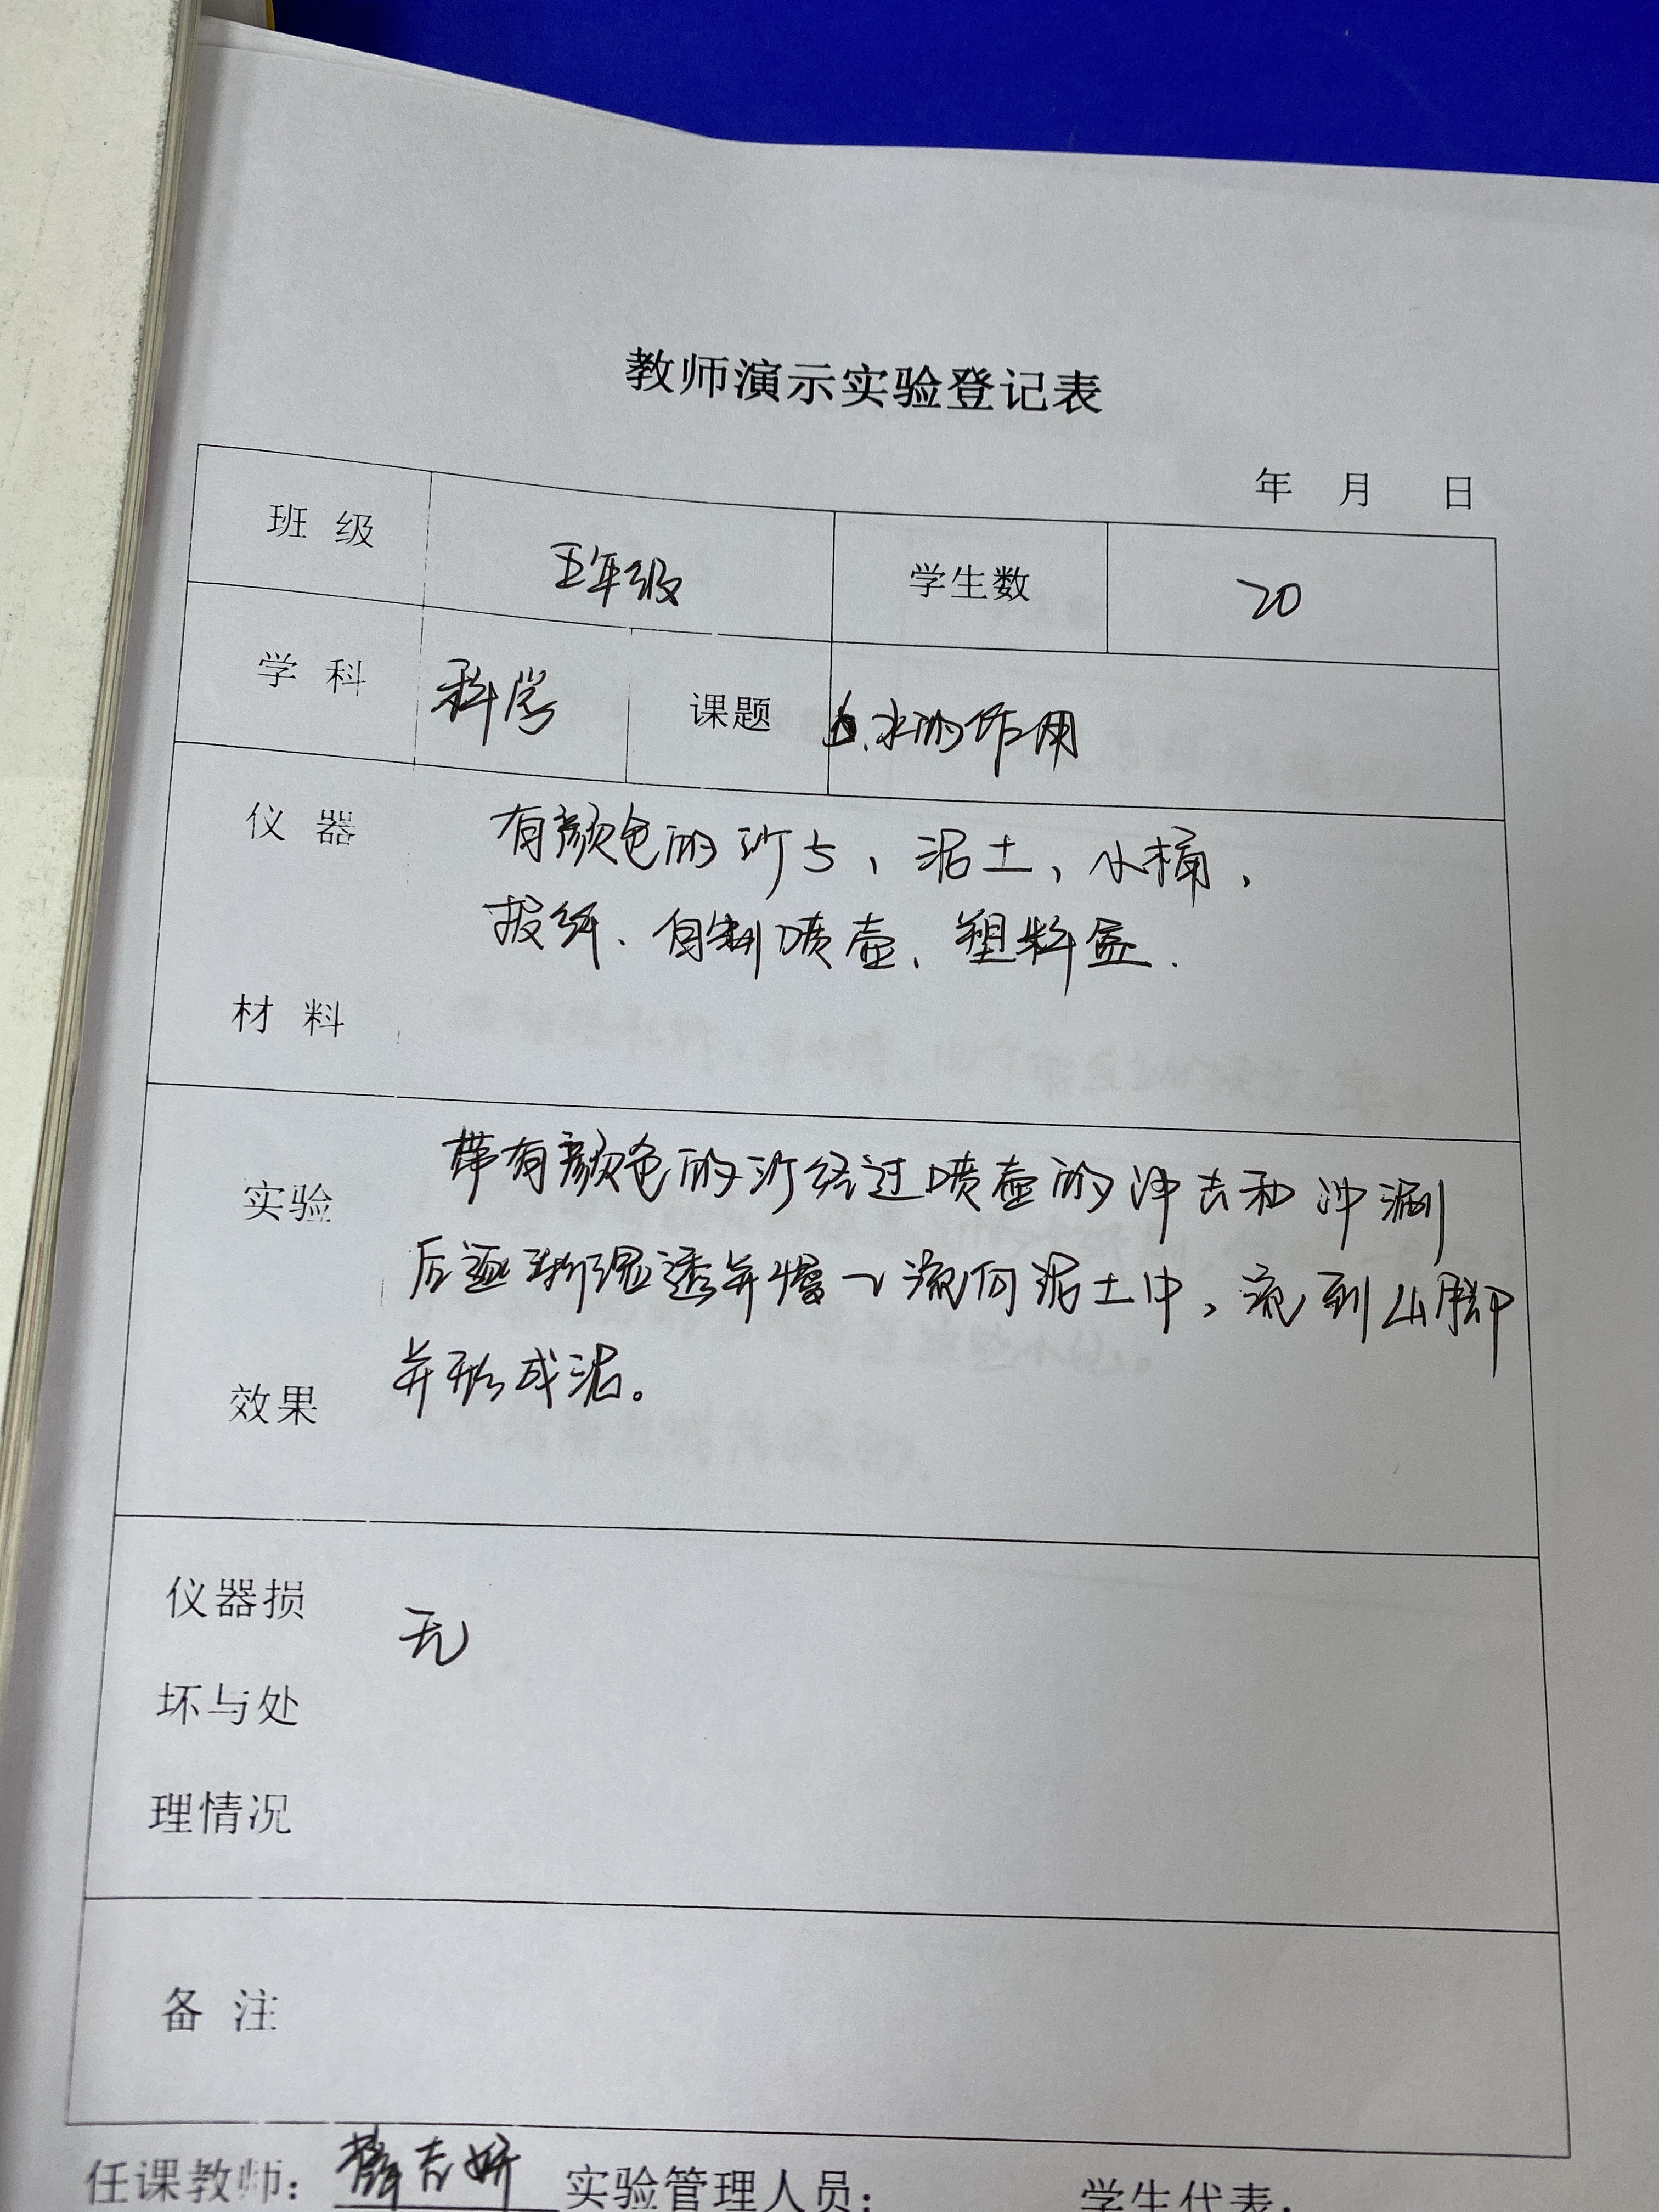 教师演示实验登记表
年 月 日
班 级 五年级 学生数 20
学 科 科学 课题 6.水的作用
仪 器 有颜色的沙与、泥土、水桶、
报纸、自制喷壶、塑料盒.
材 料
带有颜色的沙经过喷壶的冲去和冲涮
实验
后逐渐湿透并慢慢流向泥土中，流到山脚
并形成泥。
效果
仪器损 无
坏与处
理情况
备 注
任课教师： 实验管理人员： 学生代表：